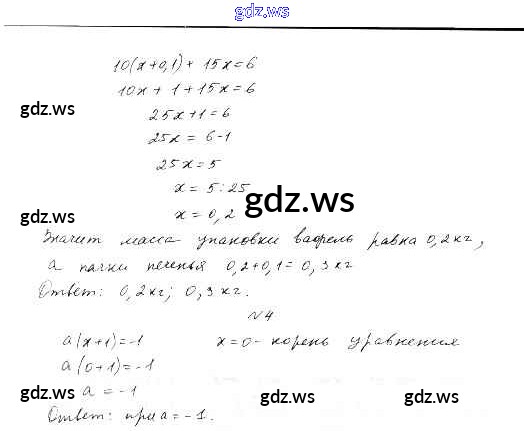 gdz.ws
10(x+0,1)+ 15x=6
10x + 1 +15x=6
gdz.ws
25x+1=6
25x = 6-1
25x=5
x = 5:25
gdz.ws
gdz.ws
x = 0,2
Значит масса упаковки вафель равна 0,2кг,
а пачки печенья 0,2+0,1=0,3кг
Ответ: 0,2кг; 0,3кг.
№4
a(x+1)=-1 x=0- корень уравнения
a(0+1)=-1
gdz.ws a = -1 gdz.ws gdz.ws
Ответ: при a=-1.